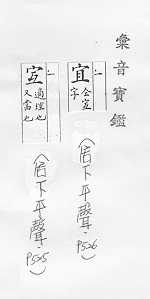 彙音寶鑑
宜
仝宐
字
(居下平聲·P526)
宐
適理也
又當也
(居下平聲·P525)